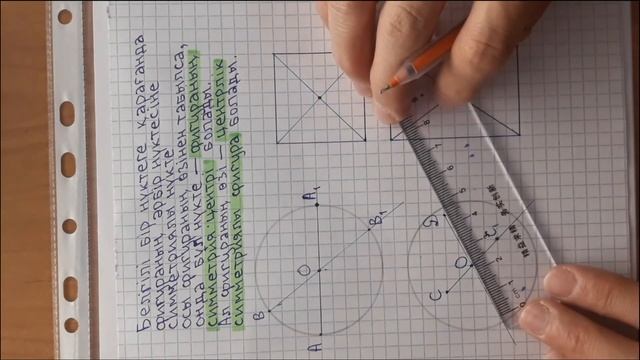 Белгілі бір нүктеге қарағанда
фигураның әрбір нүктесіне
симметриялы нүкте
осы фигураның өзінен табылса,
онда бұл нүкте – фигураның
симметрия центрі болады.
Ал фигураның өзі – центрлік
симметриялы фигура болады.
A
B
O
A₁
B₁
C
O
D
C₁
0 cm 1 2 3 4 5 6 7 8 9